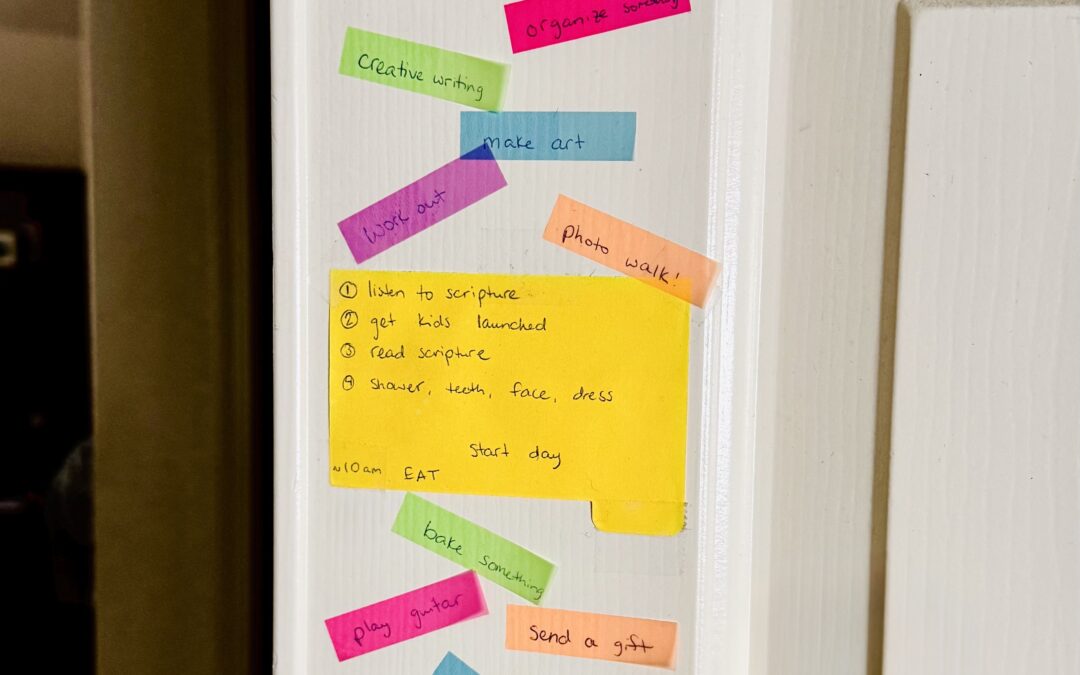 organize something
creative writing
make art
work out
photo walk!
① listen to scripture
② get kids launched
③ read scripture
④ shower, teeth, face, dress
start day
~10am EAT
bake something
play guitar
Send a gift